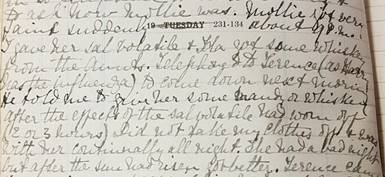 to ask how Mollie was. Mollie got very
faint suddenly about 9 p.m.
19 TUESDAY 231-134
I gave her sal volatile & Ha got some whiskey
from the Aunts. Telephoned Terence (as
has the influenza) to come down next morning
He told me to give her some brandy or whiskey
after the effect of the sal volatile had worn off
(2 or 3 hours) Did not take my clothes off & was
with her continually all night. She had a bad night
but after the sun had risen got better. Terence came